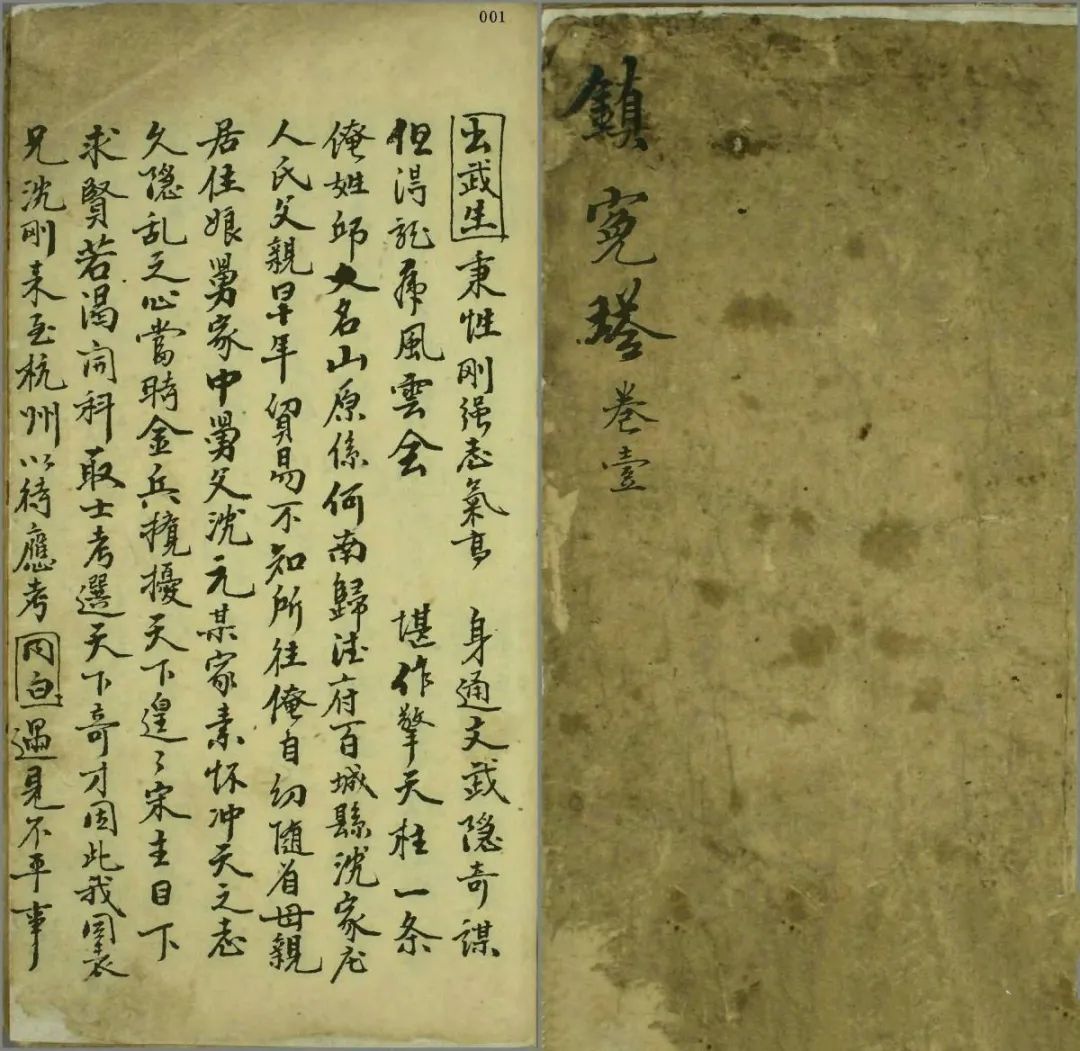 鎮寃塔 卷壹
001
出武生 秉性刚强志氣高 身通文武隐奇謀
但得龍虎風雲会 堪作擎天柱一条
俺姓邱大名山原係何南歸德府百城縣沈家庄
人氏父親早年貿易不知所往俺自幼随着母親
居住娘舅家中舅父沈元某家素怀冲天之志
久隐乱之心當時金兵攪擾天下遑〻宋主目下
求賢若渴開科取士考選天下奇才因此我同表
兄沈刚来至杭州以待應考 内白 遇見不平事